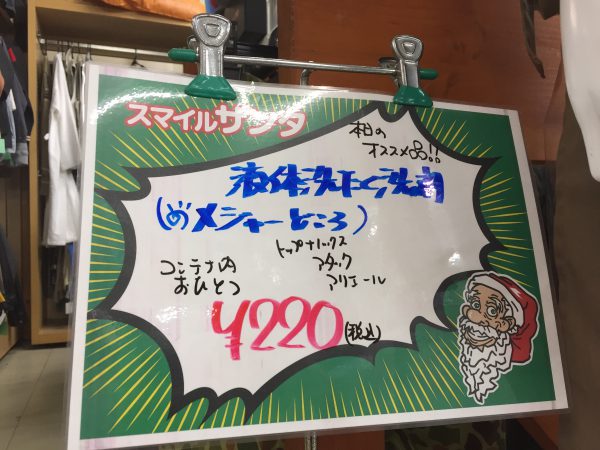 スマイルサンタ
本日の
オススメ品!!
液体洗たく洗剤
(めメジャーどころ)
トップナノックス
アタック
アリエール
コンテナ内
おひとつ
¥220(税込)